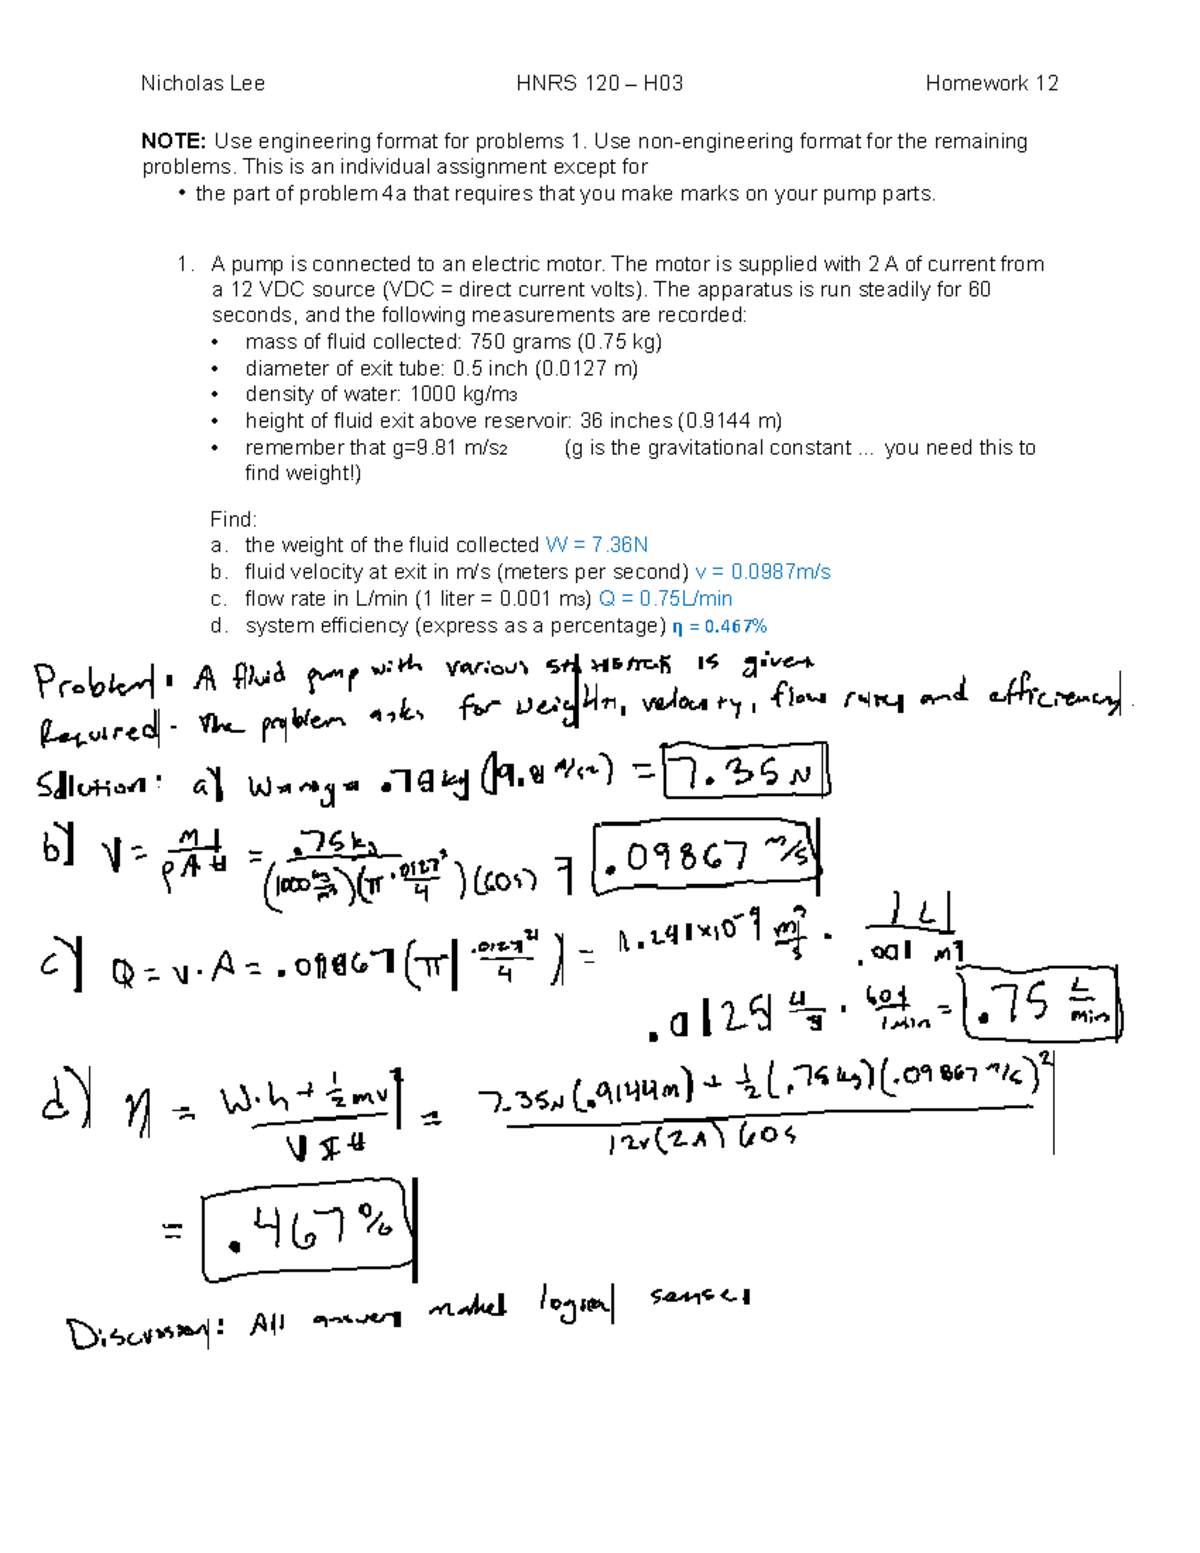 Nicholas Lee HNRS 120 – H03 Homework 12
NOTE: Use engineering format for problems 1. Use non-engineering format for the remaining
problems. This is an individual assignment except for
• the part of problem 4a that requires that you make marks on your pump parts.
1. A pump is connected to an electric motor. The motor is supplied with 2 A of current from
a 12 VDC source (VDC = direct current volts). The apparatus is run steadily for 60
seconds, and the following measurements are recorded:
• mass of fluid collected: 750 grams (0.75 kg)
• diameter of exit tube: 0.5 inch (0.0127 m)
• density of water: 1000 kg/m3
• height of fluid exit above reservoir: 36 inches (0.9144 m)
• remember that g=9.81 m/s2 (g is the gravitational constant ... you need this to
find weight!)
Find:
a. the weight of the fluid collected W = 7.36N
b. fluid velocity at exit in m/s (meters per second) v = 0.0987m/s
c. flow rate in L/min (1 liter = 0.001 m3) Q = 0.75L/min
d. system efficiency (express as a percentage) η = 0.467%
Problem: A fluid pump with various is given
Required - The problem asks for velocity, flow and efficiency.
Solution: a) = 7.35 N
b) V = = .75 kg = .09867 m/s
c) Q = v · A = .09867 (π .0127² / 4) =
.0125 · = .75 L/min
d) η = W·h + ½ mv = 7.35N (.9144m) + ½ (.75 kg)(.09867 m/s)²
12v (2A) 60s
= .467%
Discussion: All logical sense